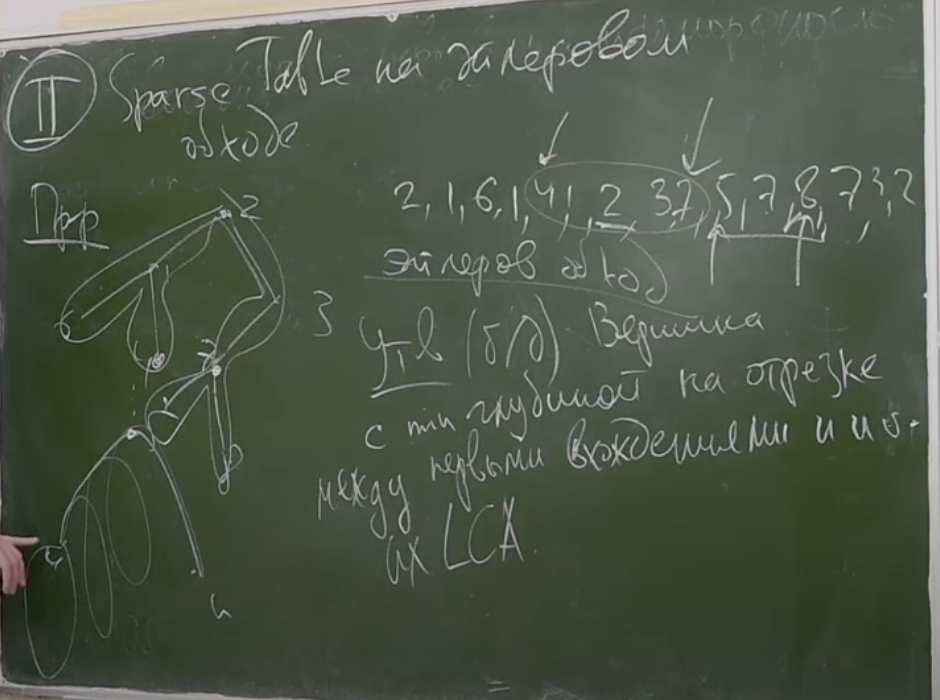 II Sparse Table на эйлеровом
обходе
Прр
2, 1, 6, 1, 4, 1, 2, 3, 7, 5, 7, 8, 7, 3, 2
эйлеров обход
2
3
6
Утв (б/д) Вершина
с min глубиной на отрезке
между первыми вхождениями и
их LCA.